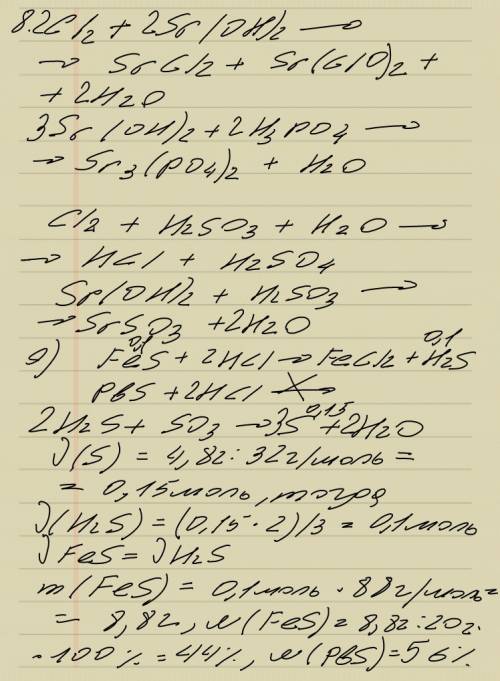 8. 2Cl2 + 2Sr(OH)2 →
→ SrCl2 + Sr(ClO)2 +
+ 2H2O
3Sr(OH)2 + 2H3PO4 →
→ Sr3(PO4)2 + H2O
Cl2 + H2SO3 + H2O →
→ HCl + H2SO4
Sr(OH)2 + H2SO3 →
→ SrSO3 + 2H2O
0,1 0,1
9) FeS + 2HCl → FeCl2 + H2S
PbS + 2HCl ↛
0,15
2H2S + SO3 → 3S + 2H2O
ν(S) = 4,8г : 32г/моль =
= 0,15моль, тогда
ν(H2S) = (0,15 · 2)/3 = 0,1моль
νFeS = νH2S
m(FeS) = 0,1моль · 88г/моль=
= 8,8г, w(FeS) = 8,8г : 20г ·
· 100% = 44%, w(PbS) = 56%